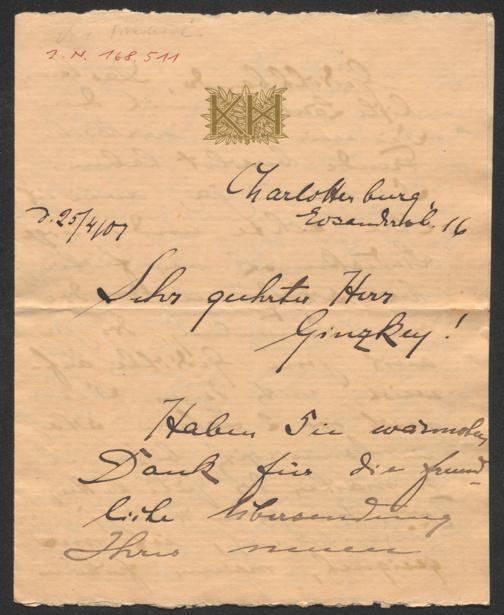 J. N. 168.511
KH
Charlottenburg,
Eosanderstr. 16
d. 25/4/07
Sehr geehrter Herr
Ginzkey!
Haben Sie wärmsten
Dank für die freund-
liche Übersendung
Ihres neuen